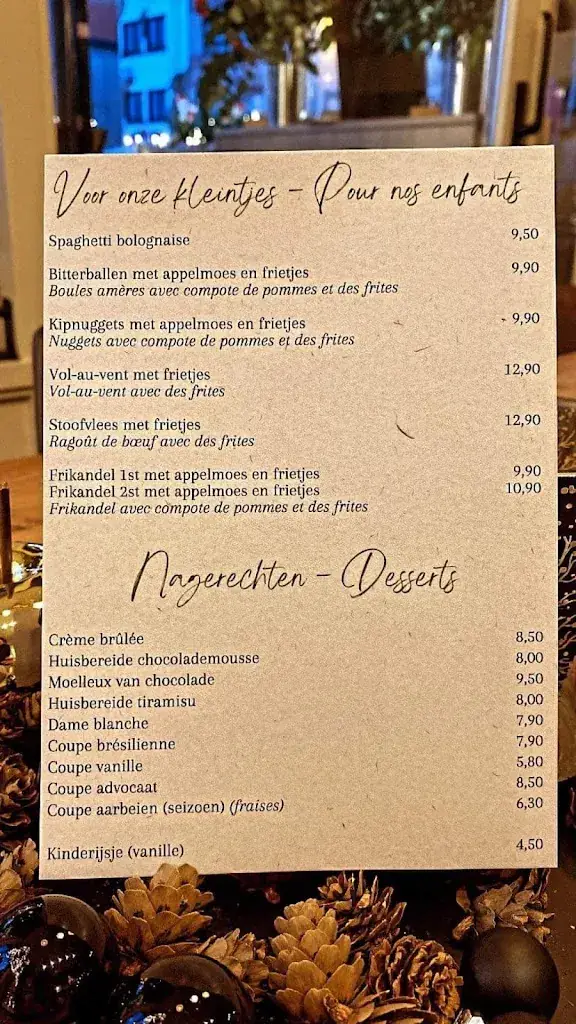 Voor onze kleintjes – Pour nos enfants
Spaghetti bolognaise 9,50
Bitterballen met appelmoes en frietjes 9,90
Boules amères avec compote de pommes et des frites
Kipnuggets met appelmoes en frietjes 9,90
Nuggets avec compote de pommes et des frites
Vol-au-vent met frietjes 12,90
Vol-au-vent avec des frites
Stoofvlees met frietjes 12,90
Ragoût de bœuf avec des frites
Frikandel 1st met appelmoes en frietjes 9,90
Frikandel 2st met appelmoes en frietjes 10,90
Frikandel avec compote de pommes et des frites
Nagerechten – Desserts
Crème brûlée 8,50
Huisbereide chocolademousse 8,00
Moelleux van chocolade 9,50
Huisbereide tiramisu 8,00
Dame blanche 7,90
Coupe brésilienne 7,90
Coupe vanille 5,80
Coupe advocaat 8,50
Coupe aarbeien (seizoen) (fraises) 6,30
Kinderijsje (vanille) 4,50